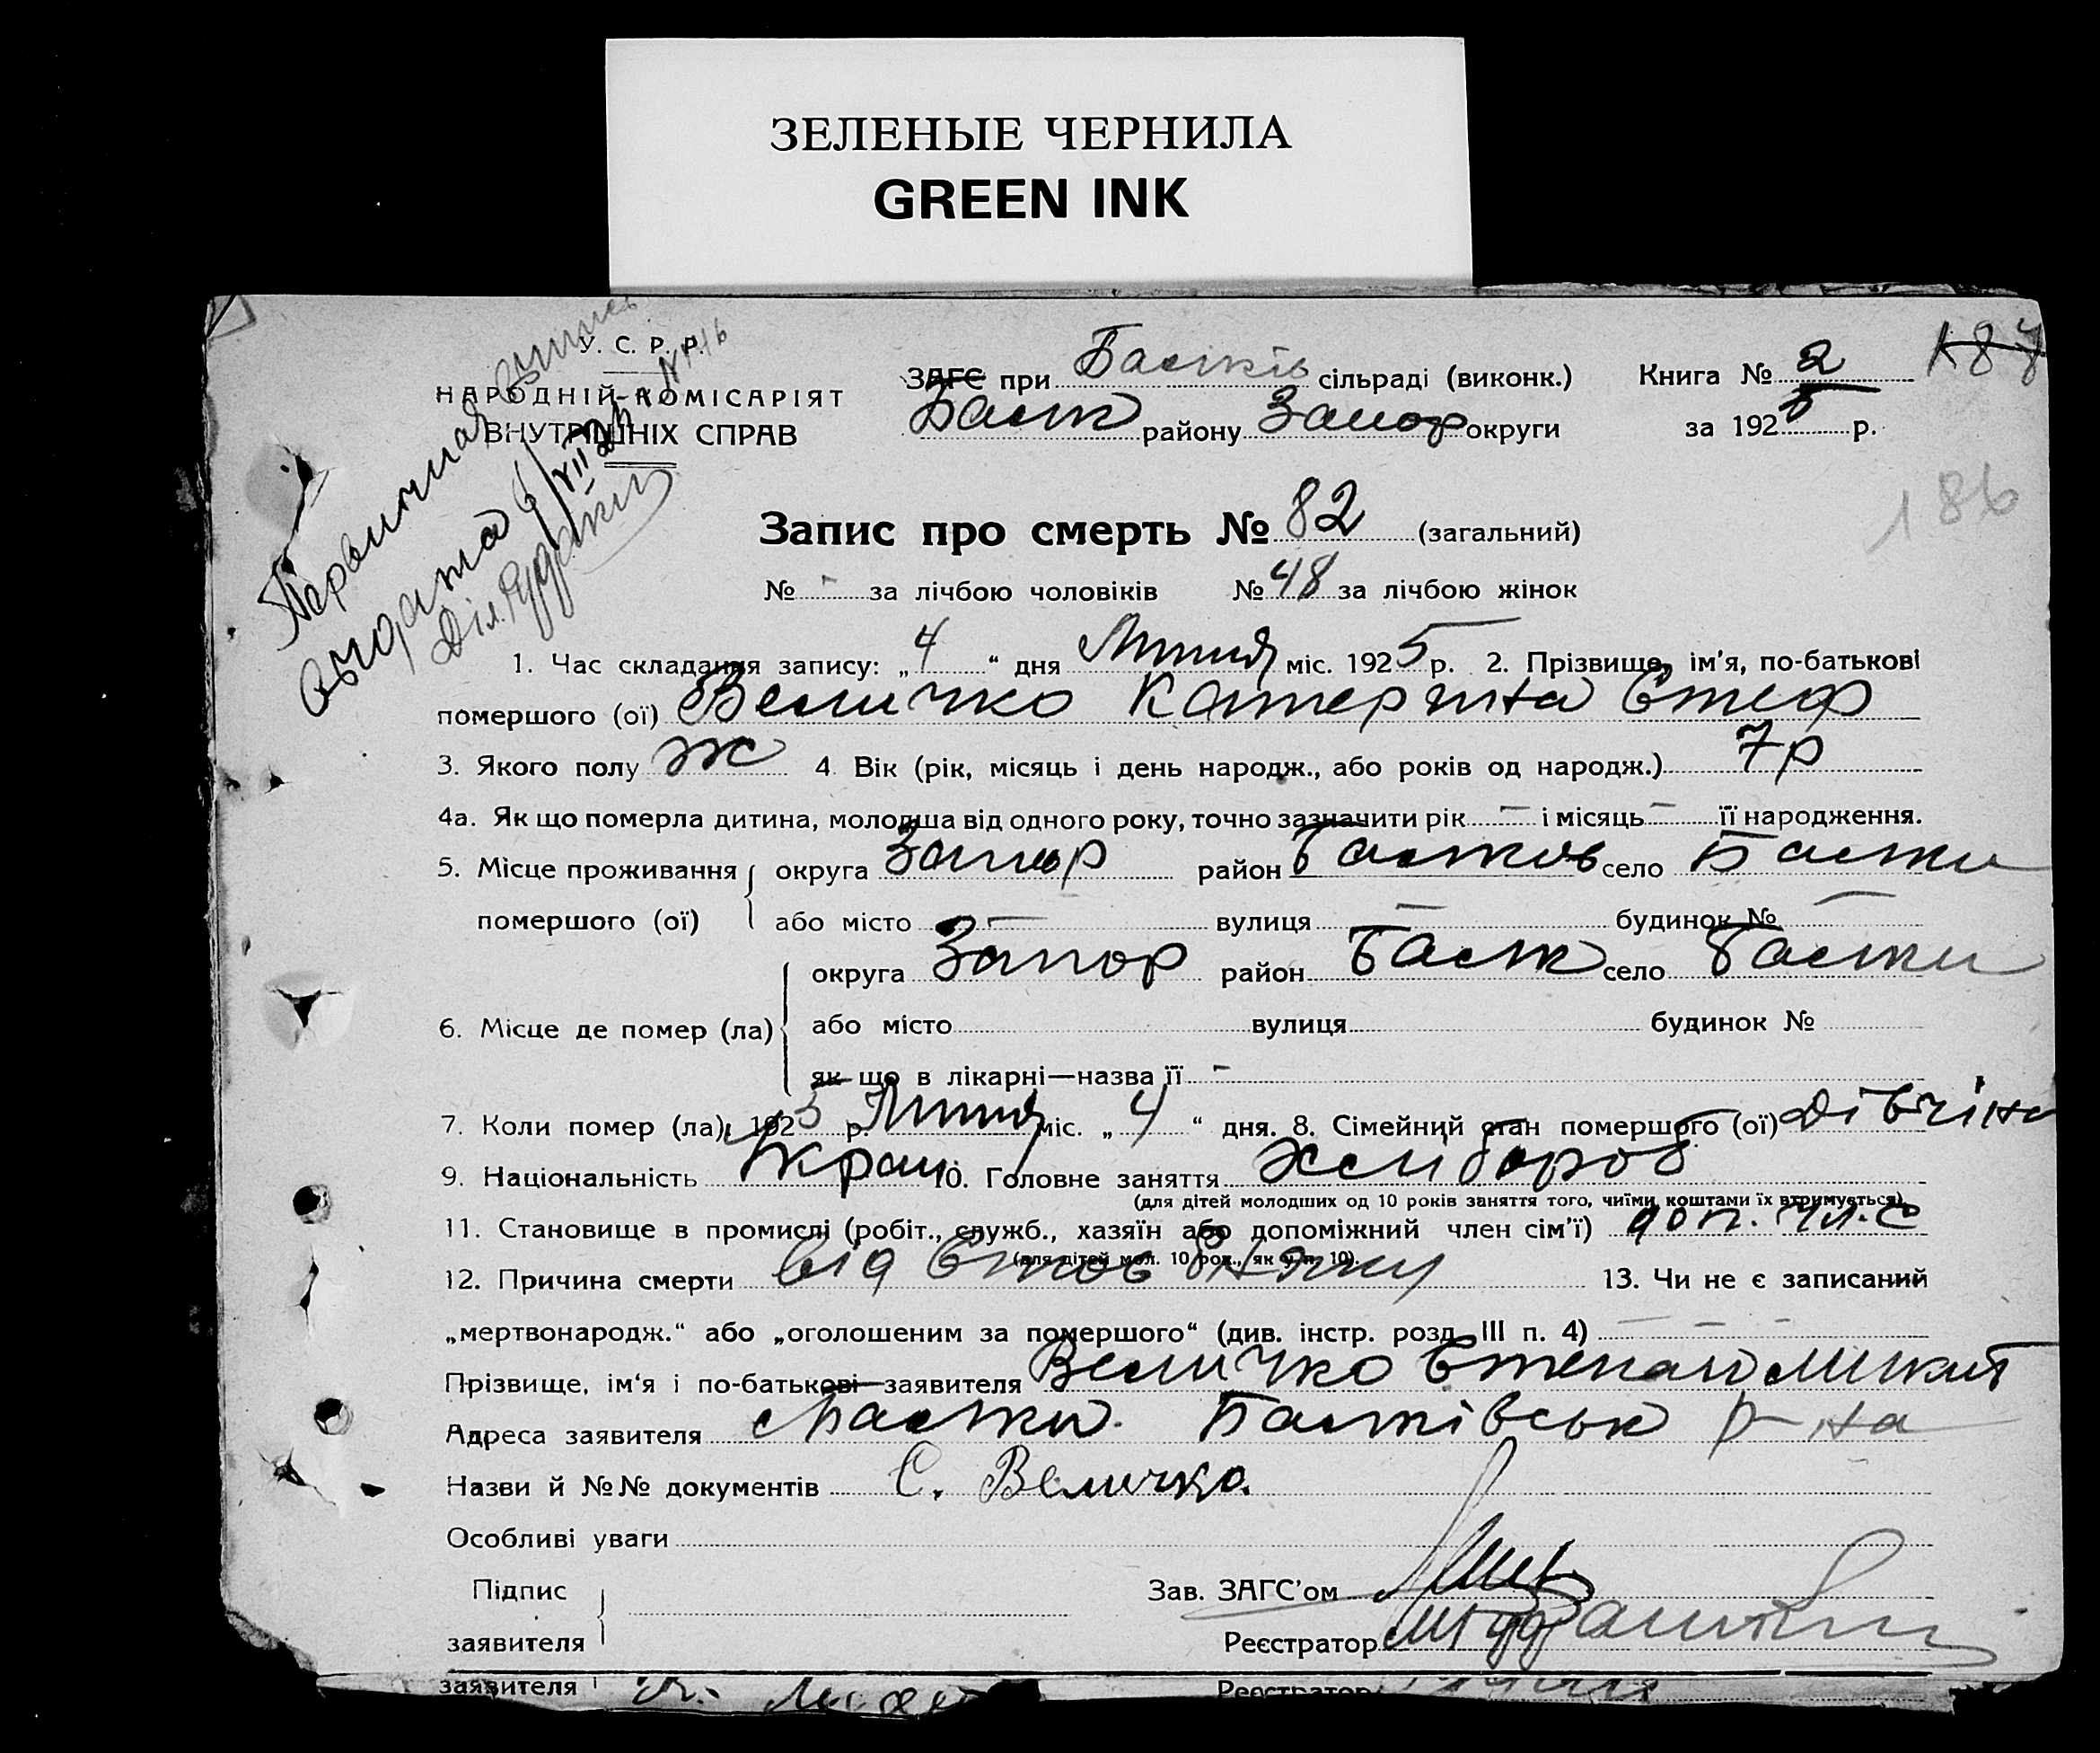 ЗЕЛЕНЫЕ ЧЕРНИЛА
GREEN INK
У. С. Р. Р.
НАРОДНІЙ КОМІСАРІЯТ
ВНУТРІШНІХ СПРАВ
Первичная выпись
выдана
ЗАГС при Басків сільраді (виконк.) Книга № 2 187
району Запор округи за 1925 р.
186
Запис про смерть № 82 (загальний)
№ - за лічбою чоловіків № 48 за лічбою жінок
1. Час складання запису: „4“ дня Липня міс. 1925 р. 2. Прізвище, ім'я, по-батькові
помершого (ої) Величко Катерина Стеф
3. Якого полу ж 4 Вік (рік, місяць і день народж., або років од народж.) 7 р
4а. Як що померла дитина, молодша від одного року, точно зазначити рік — і місяць — її народження.
5. Місце проживання округа Запор район село
помершого (ої) або місто — вулиця — будинок № —
округа Запор район село
6. Місце де помер (ла) або місто вулиця будинок №
як що в лікарні—назва її -
7. Коли помер (ла) 1925 р. Липня міс. „4“ дня. 8. Сімейний стан помершого (ої) Дівчіна
9. Національність Украін 10. Головне заняття Хлібороб
(для дітей молодших од 10 років заняття того, чиїми коштами їх втримується)
11. Становище в промислі (робіт., служб., хазяїн або допоміжний член сім'ї) доп. чл. с
(для дітей мол. 10 рок., як у п. 10)
12. Причина смерти від 13. Чи не є записаний
„мертвонародж.“ або „оголошеним за помершого“ (див. інстр. розд. III п. 4) — — -
Прізвище, ім'я і по-батькові заявителя Величко Степан Микит
Адреса заявителя р-на
Назви й №№ документів С. Величко.
Особливі уваги
Підпис Зав. ЗАГС'ом
заявителя Реєстратор
заявителя Реєстратор